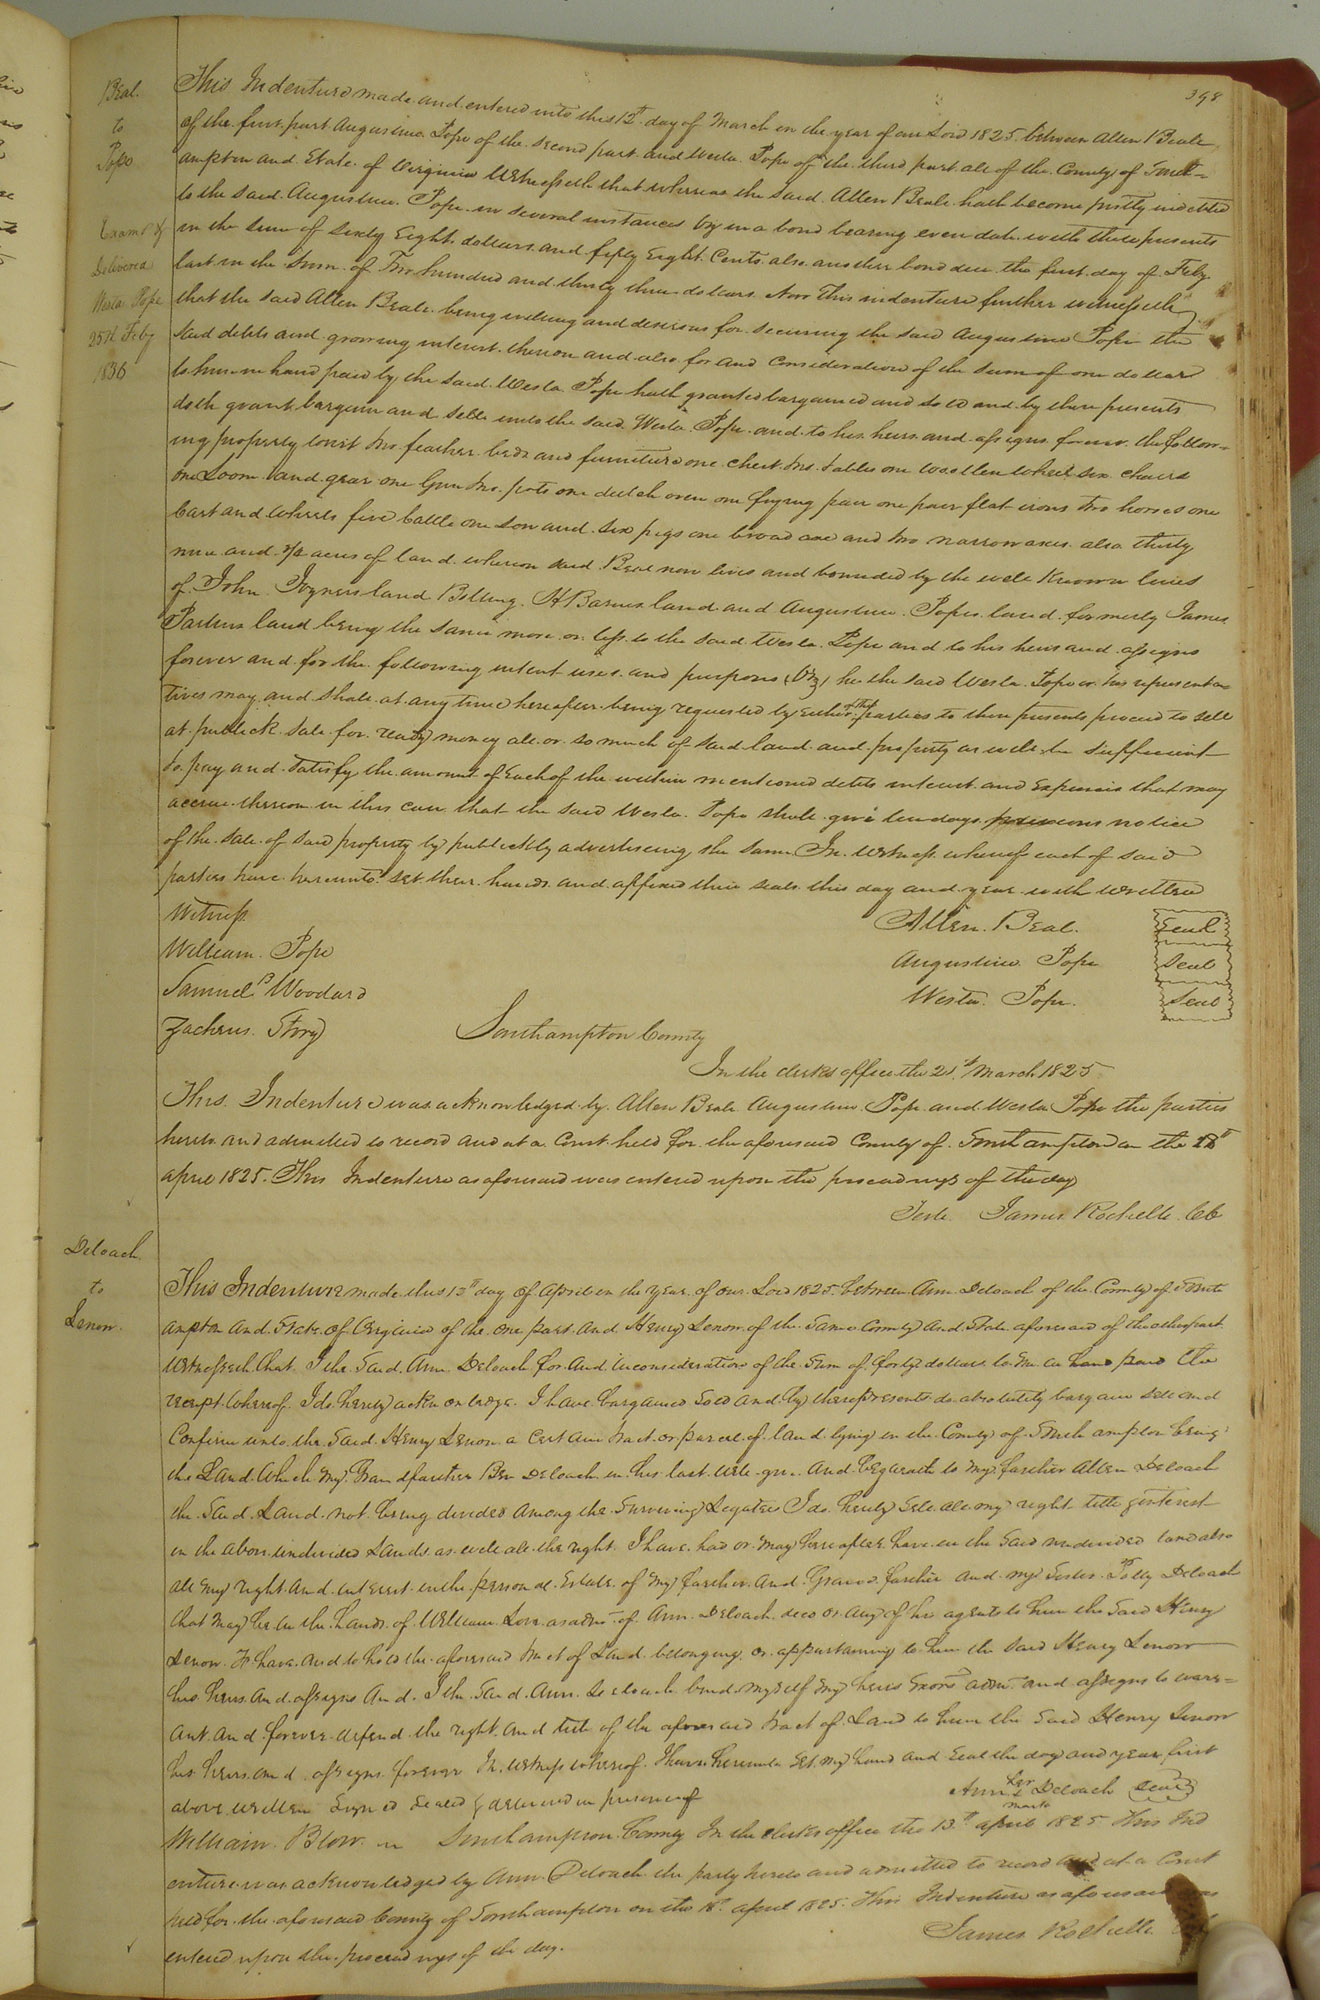 398
Beal.
to
Pope
Exam.d &
Delivered
Westa Pope
25th Feby
1836
This Indenture made and entered into this 12th day of March in the year of our Lord 1825 between Allen Beale
of the first part Augustine Pope of the second part and Westa Pope of the third part all of the County of South=
ampton and State of Virginia Witnesseth that whereas the said Allen Beale hath become justly indebted
to the said Augustine Pope in several instances by in a bond bearing even date with these presents
in the sum of Sixty Eight dollars and fifty Eight Cents also another bond due the first day of Feby
last in the Sum of Two hundred and thirty three dollars Now This indenture further witnesseth
that the said Allen Beale being willing and desirous for securing the said Augustine Pope the
said debts and growing interest thereon and also for and Consideration of the sum of one dollar
to him in hand paid by the said Westa Pope hath granted bargained and sold and by these presents
doth grant bargain and sell unto the said Westa Pope and to his heirs and assigns forever the follow=
ing property towit two feather beds and furniture one chest two tables one woollen wheel six chairs
one Loom and gear one Gun two pots one dutch oven one frying pan one pair flat irons two horses one
Cart and wheels five Cattle one Sow and six pigs one broad axe and two narrow axes also thirty
nine and 1/2 acres of land whereon said Beal now lives and bounded by the well known lines
of John Joyners land B. H Barnes land and Augustine Popes land formerly James
land being the same more or less to the said Westa Pope and to his heirs and assigns
forever and for the following intent uses and purposes (Viz) he the said Westa Pope or his representa
tives may and shall at any time hereafter being requested by either of the parties to these presents proceed to sell
at publick sale for ready money all or so much of said land and property as will be sufficient
to pay and satisfy the amount of Each of the within mentioned debts interest and Expences that may
accrue thereon in this case that the said Westa Pope shall give ten days previous notice
of the sale of said property by publickly advertiseing the same In witness whereof each of said
parties have hereunto set their hands and affixed their seals this day and year with written
Witness
Allen Beal. Seal
William Pope
Augustine Pope Seal
Samuel P Woodard
Westa Pope. Seal
Zacheus
Southampton County
In the clerks office the 21st March 1825
This Indenture was acknowledged by Allen Beale Augustine Pope and Westa Pope the parties
hereto and admitted to record and at a Court held for the aforesaid County of Southampton on the 18th
april 1825. This Indenture as aforesaid was entered upon the proceedings of the day
Teste James Rochelle CC
Deloach
to
Lenow.
This Indenture made this 13th day of April in the year of our Lord 1825 between Ann Deloach of the County of South
ampton and State of Virginia of the one part and Henry Lenow of the same County and State aforesaid of the other part
Witnesseth that I the said Ann Deloach for and inconsideration of the sum of forty dollars to me in hand paid the
receipt whereof I do hereby acknowledge I have bargained sold and by these presents do absolutely bargain sell and
Confirm unto the said Henry Lenow a Certain tract or parcel of land lying in the County of Southampton being
the Land which my Grandfarther Ben Deloach in his last will give and begarath to my farther Allen Deloach
the said Land not being divided among the Surviving Legatees I do hereby sell all my right title & interest
in the above undivided Lands as well all the right I have had or may hereafter have in the said undivided land also
all my right and interest in the personal Estate of my farther and Grand farther and my Sister Polly Deloach
that may be in the hands of William Love as admr of Ann Deloach decd or any of his agents to him the said Henry
Lenow To have and to hold the aforesaid tract of Land belonging or appurtaining to him the said Henry Lenow
his heirs and assigns And I the said Ann Deloach bind myself my heirs Exors admr and assigns to warr=
ant and forever defend the right and title of the aforesaid tract of Land to him the said Henry Lenow
his heirs and assigns forever In witness whereof I have hereunto set my hand and seal the day and year first
above written Signed Sealed & delivered in presence of
Ann her mark Deloach Seal
William Blow
Southampton County In the clerks office the 13th april 1825 This Ind
enture was acknowledged by Ann Deloach the party hereto and admitted to record and at a Court
held for the aforesaid County of Southampton on the 18th april 1825. This Indenture as aforesaid was
entered upon the proceedings of the day.
James Rochelle